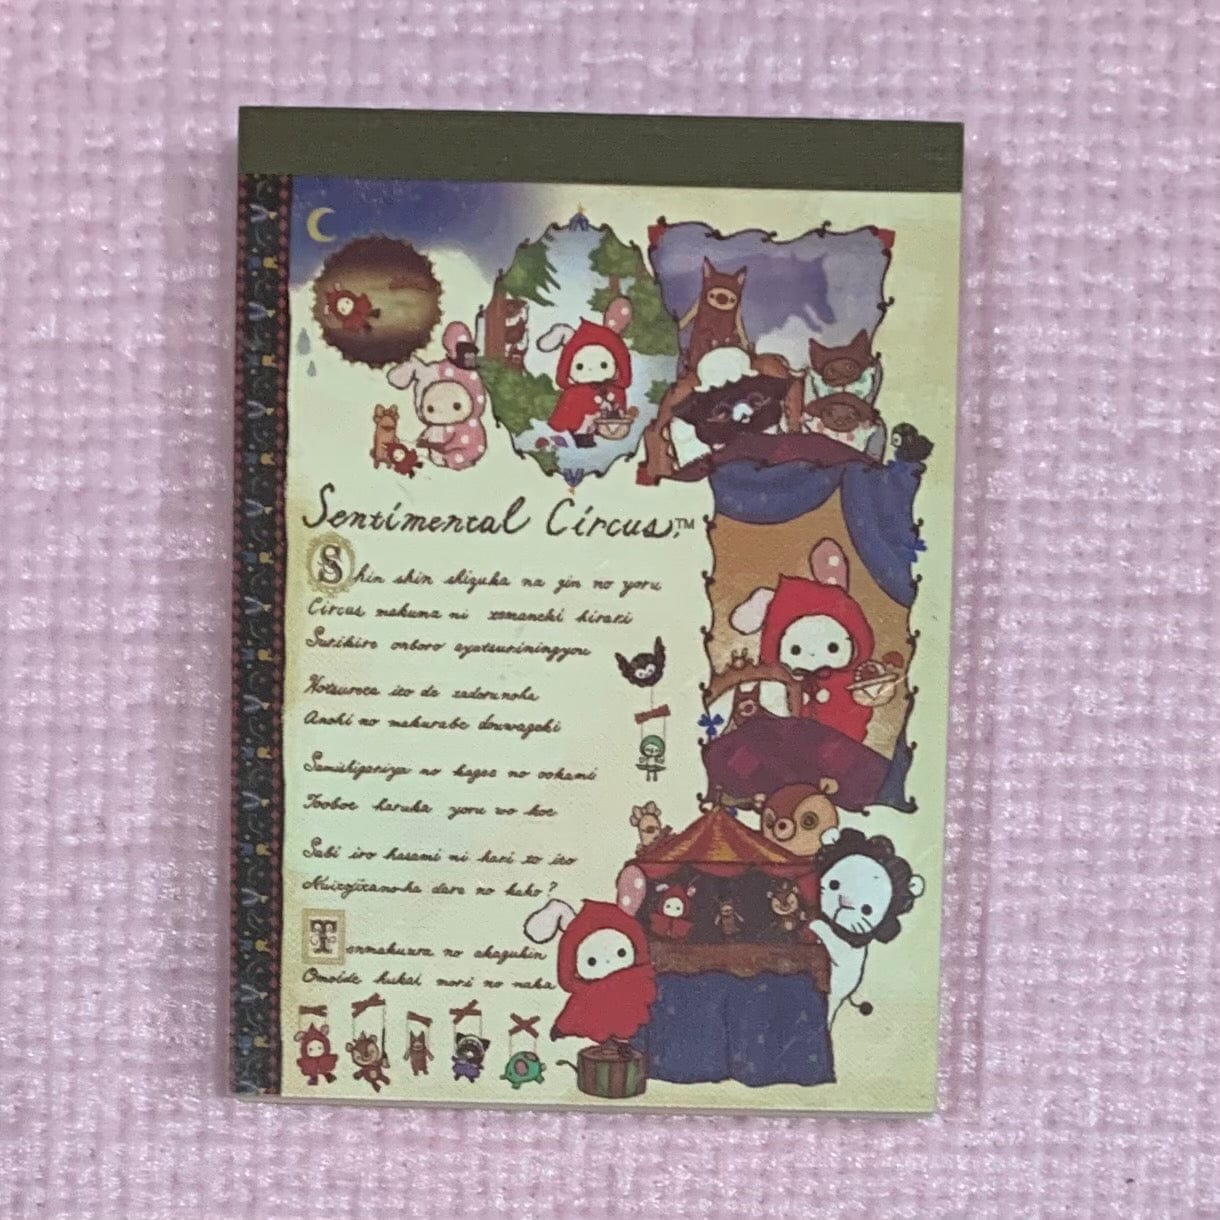 Sentimental Circus.™
Shin shin shizuka na gin no yoru
Circus makuma ni temaneki hirari
Surikire onboro ayatsuriningyou
Hotsureta ito de tadorunoha
Anohi no makurabe douwageki
Samishigariya no kagee no ookami
Tooboe haruka yoru wo koe
Sabi iro hasami ni hari to ito
Nuitojitanoha dare no kako?
Tenmakuura no akazukin
Omoide hukai mori no naka